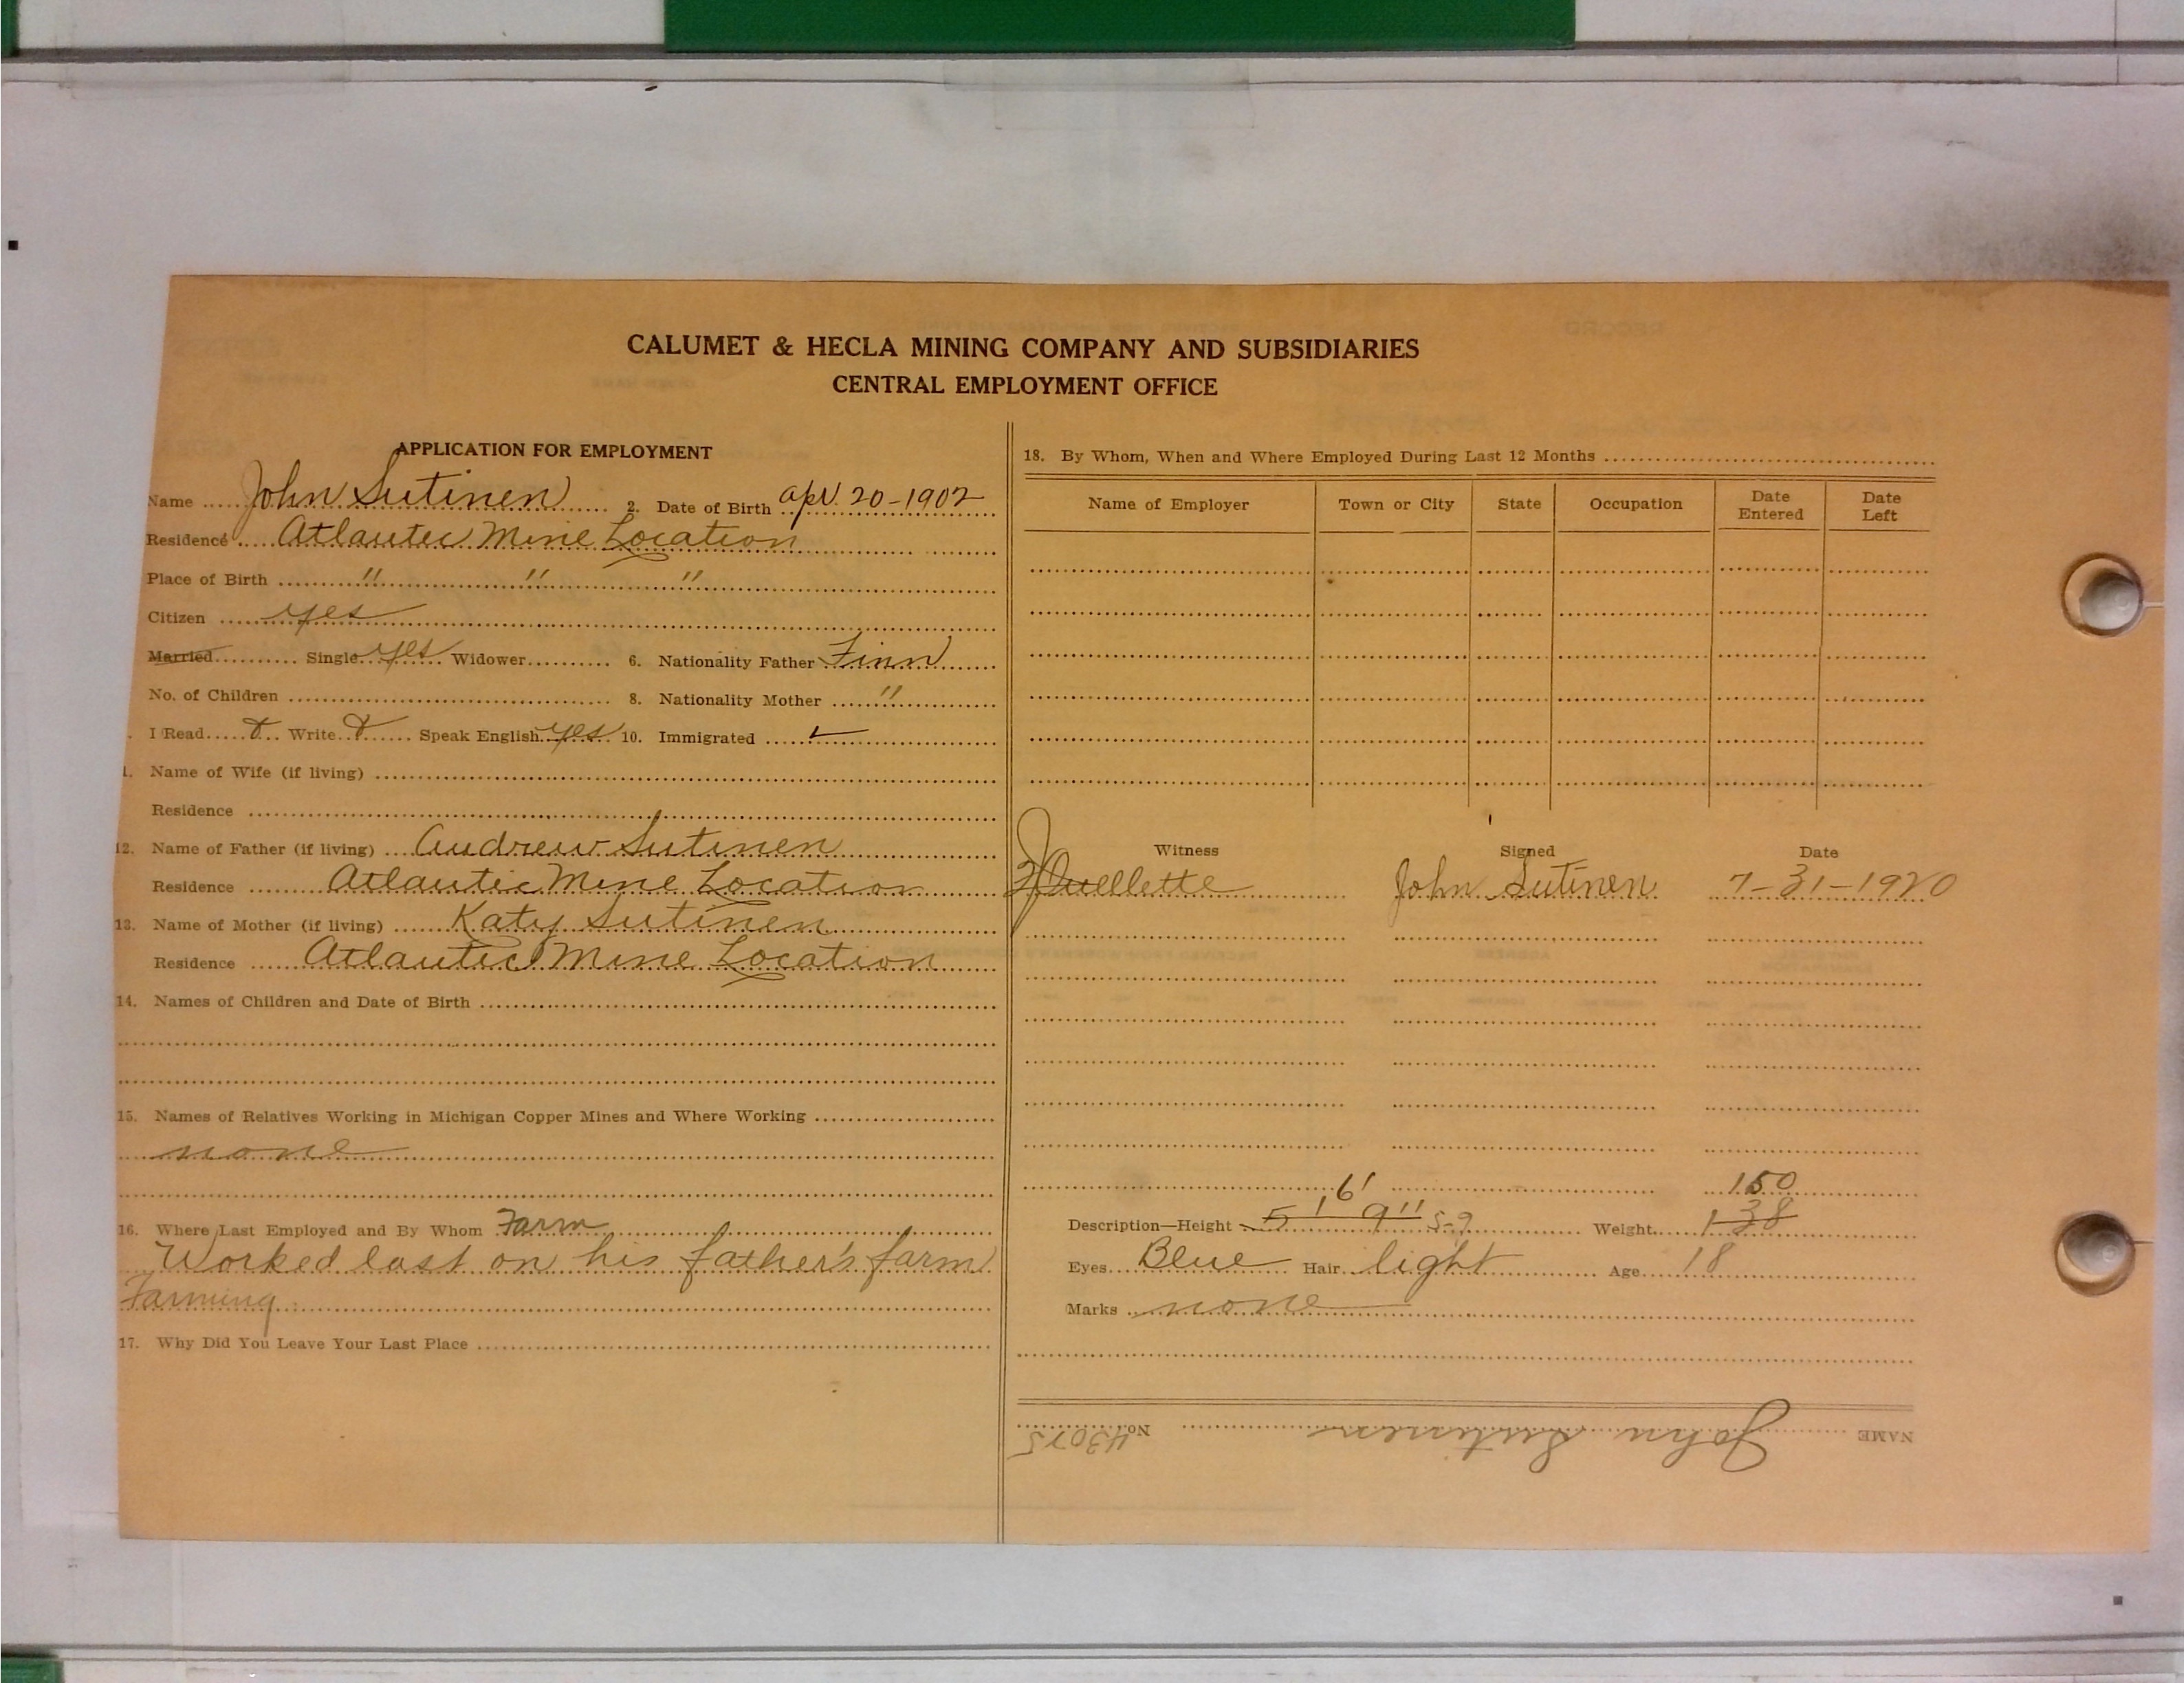 CALUMET & HECLA MINING COMPANY AND SUBSIDIARIES
CENTRAL EMPLOYMENT OFFICE
APPLICATION FOR EMPLOYMENT
Name John Sutinen 2. Date of Birth Apr. 20-1902
Residence Atlantic Mine Location
Place of Birth " " "
Citizen yes
Married Single yes Widower 6. Nationality Father Finn
No. of Children 8. Nationality Mother "
I Read Write Speak English yes 10. Immigrated
1. Name of Wife (if living)
Residence
12. Name of Father (if living) Andrew Sutinen
Residence Atlantic Mine Location
13. Name of Mother (if living) Katy Sutinen
Residence Atlantic Mine Location
14. Names of Children and Date of Birth
15. Names of Relatives Working in Michigan Copper Mines and Where Working
none
16. Where Last Employed and By Whom Farm
Worked last on his father's farm
Farming
17. Why Did You Leave Your Last Place
18. By Whom, When and Where Employed During Last 12 Months
Name of Employer Town or City State Occupation Date Entered Date Left
Witness Signed Date
Ouellette John Sutinen 7-31-1920
6' 150
Description—Height 5' 9" 5-9 Weight 138
Eyes Blue Hair light Age 18
Marks none
NAME John Sutinen No. 43075